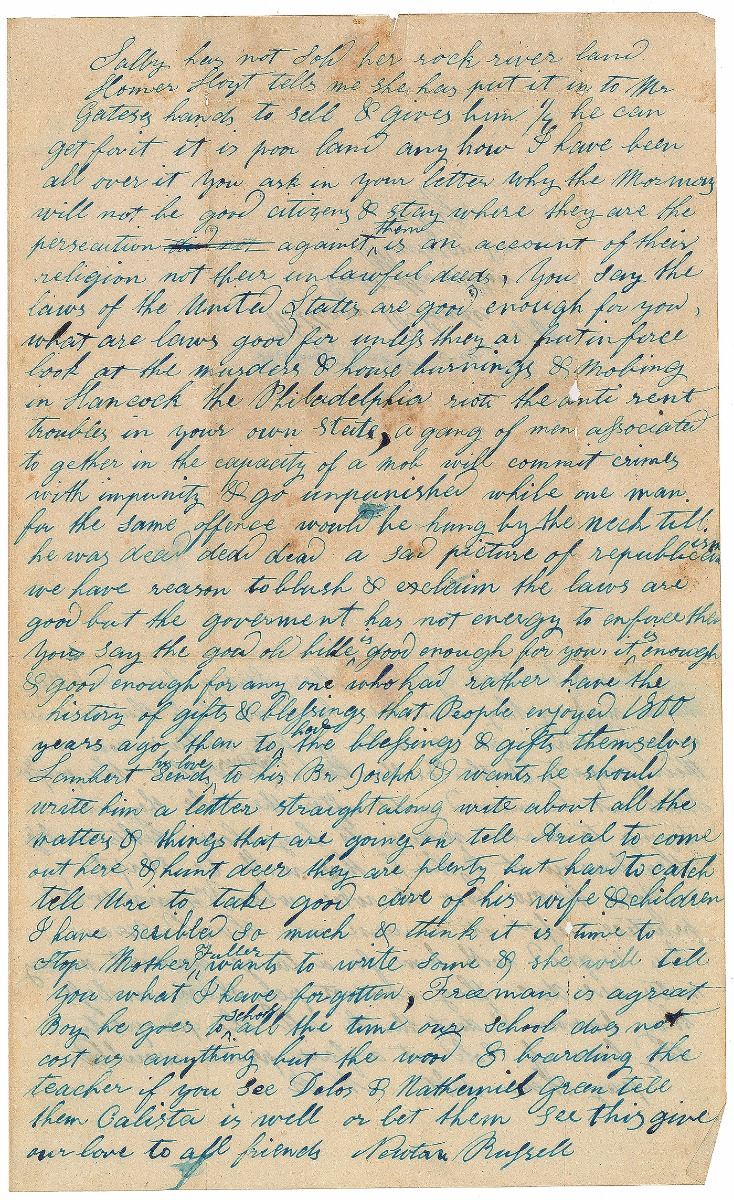 Sally has not sold her rock river land
Homer Hoyt tells me she has put it in to Mr
Gates,s hands to sell & gives him 1/2 he can
get for it it is poor land any how I have been
all over it You ask in your letter why the Mormons
will not be good citizens & stay where they are the
persecution against them is an account of their
religion not their unlawful deeds, You say the
laws of the United States are good enough for you,
what are laws good for unless they ar put in force
look at the murders & house burnings & Mobing
in Hancock the Philadelphia riots the anti rent
troubles in your own State, a gang of men associated
to gether in the capacity of a mob will commit crimes
with impunity & go unpunished while one man
for the same offence would be hung by the neck till
he was dead dead dead a sad picture of republicanism
we have reason to blush & exclaim the laws are
good but the goverment has not energy to enforce them
You say the good old bible is good enough for you. it is enough
& good enough for any one who had rather have the
history of gifts & blessings that People enjoyed 1800
years ago than to have the blessings & gifts themselves
Lambert sends his love to his Br Joseph & wants he should
write him a letter straight along write about all the
matters & things that are going on tell Arial to come
out here & hunt deer they are plenty but hard to catch
tell Uri to take good care of his wife & children
I have scribled so much & think it is time to
Stop Mother Fuller wants to write some & she will tell
you what I have forgotten, Freeman is a great
Boy he goes to school all the time our school does not
cost us anything but the wood & boarding the
teacher if you see Delos & Nathaniel Green tell
them Calista is well or let them see this give
our love to all friends Newton Russell